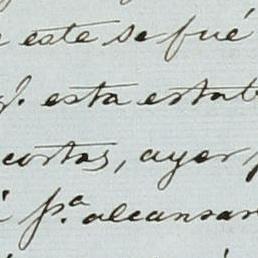 este se fué
esta estab
cortas, ayer
p.ª alcansar